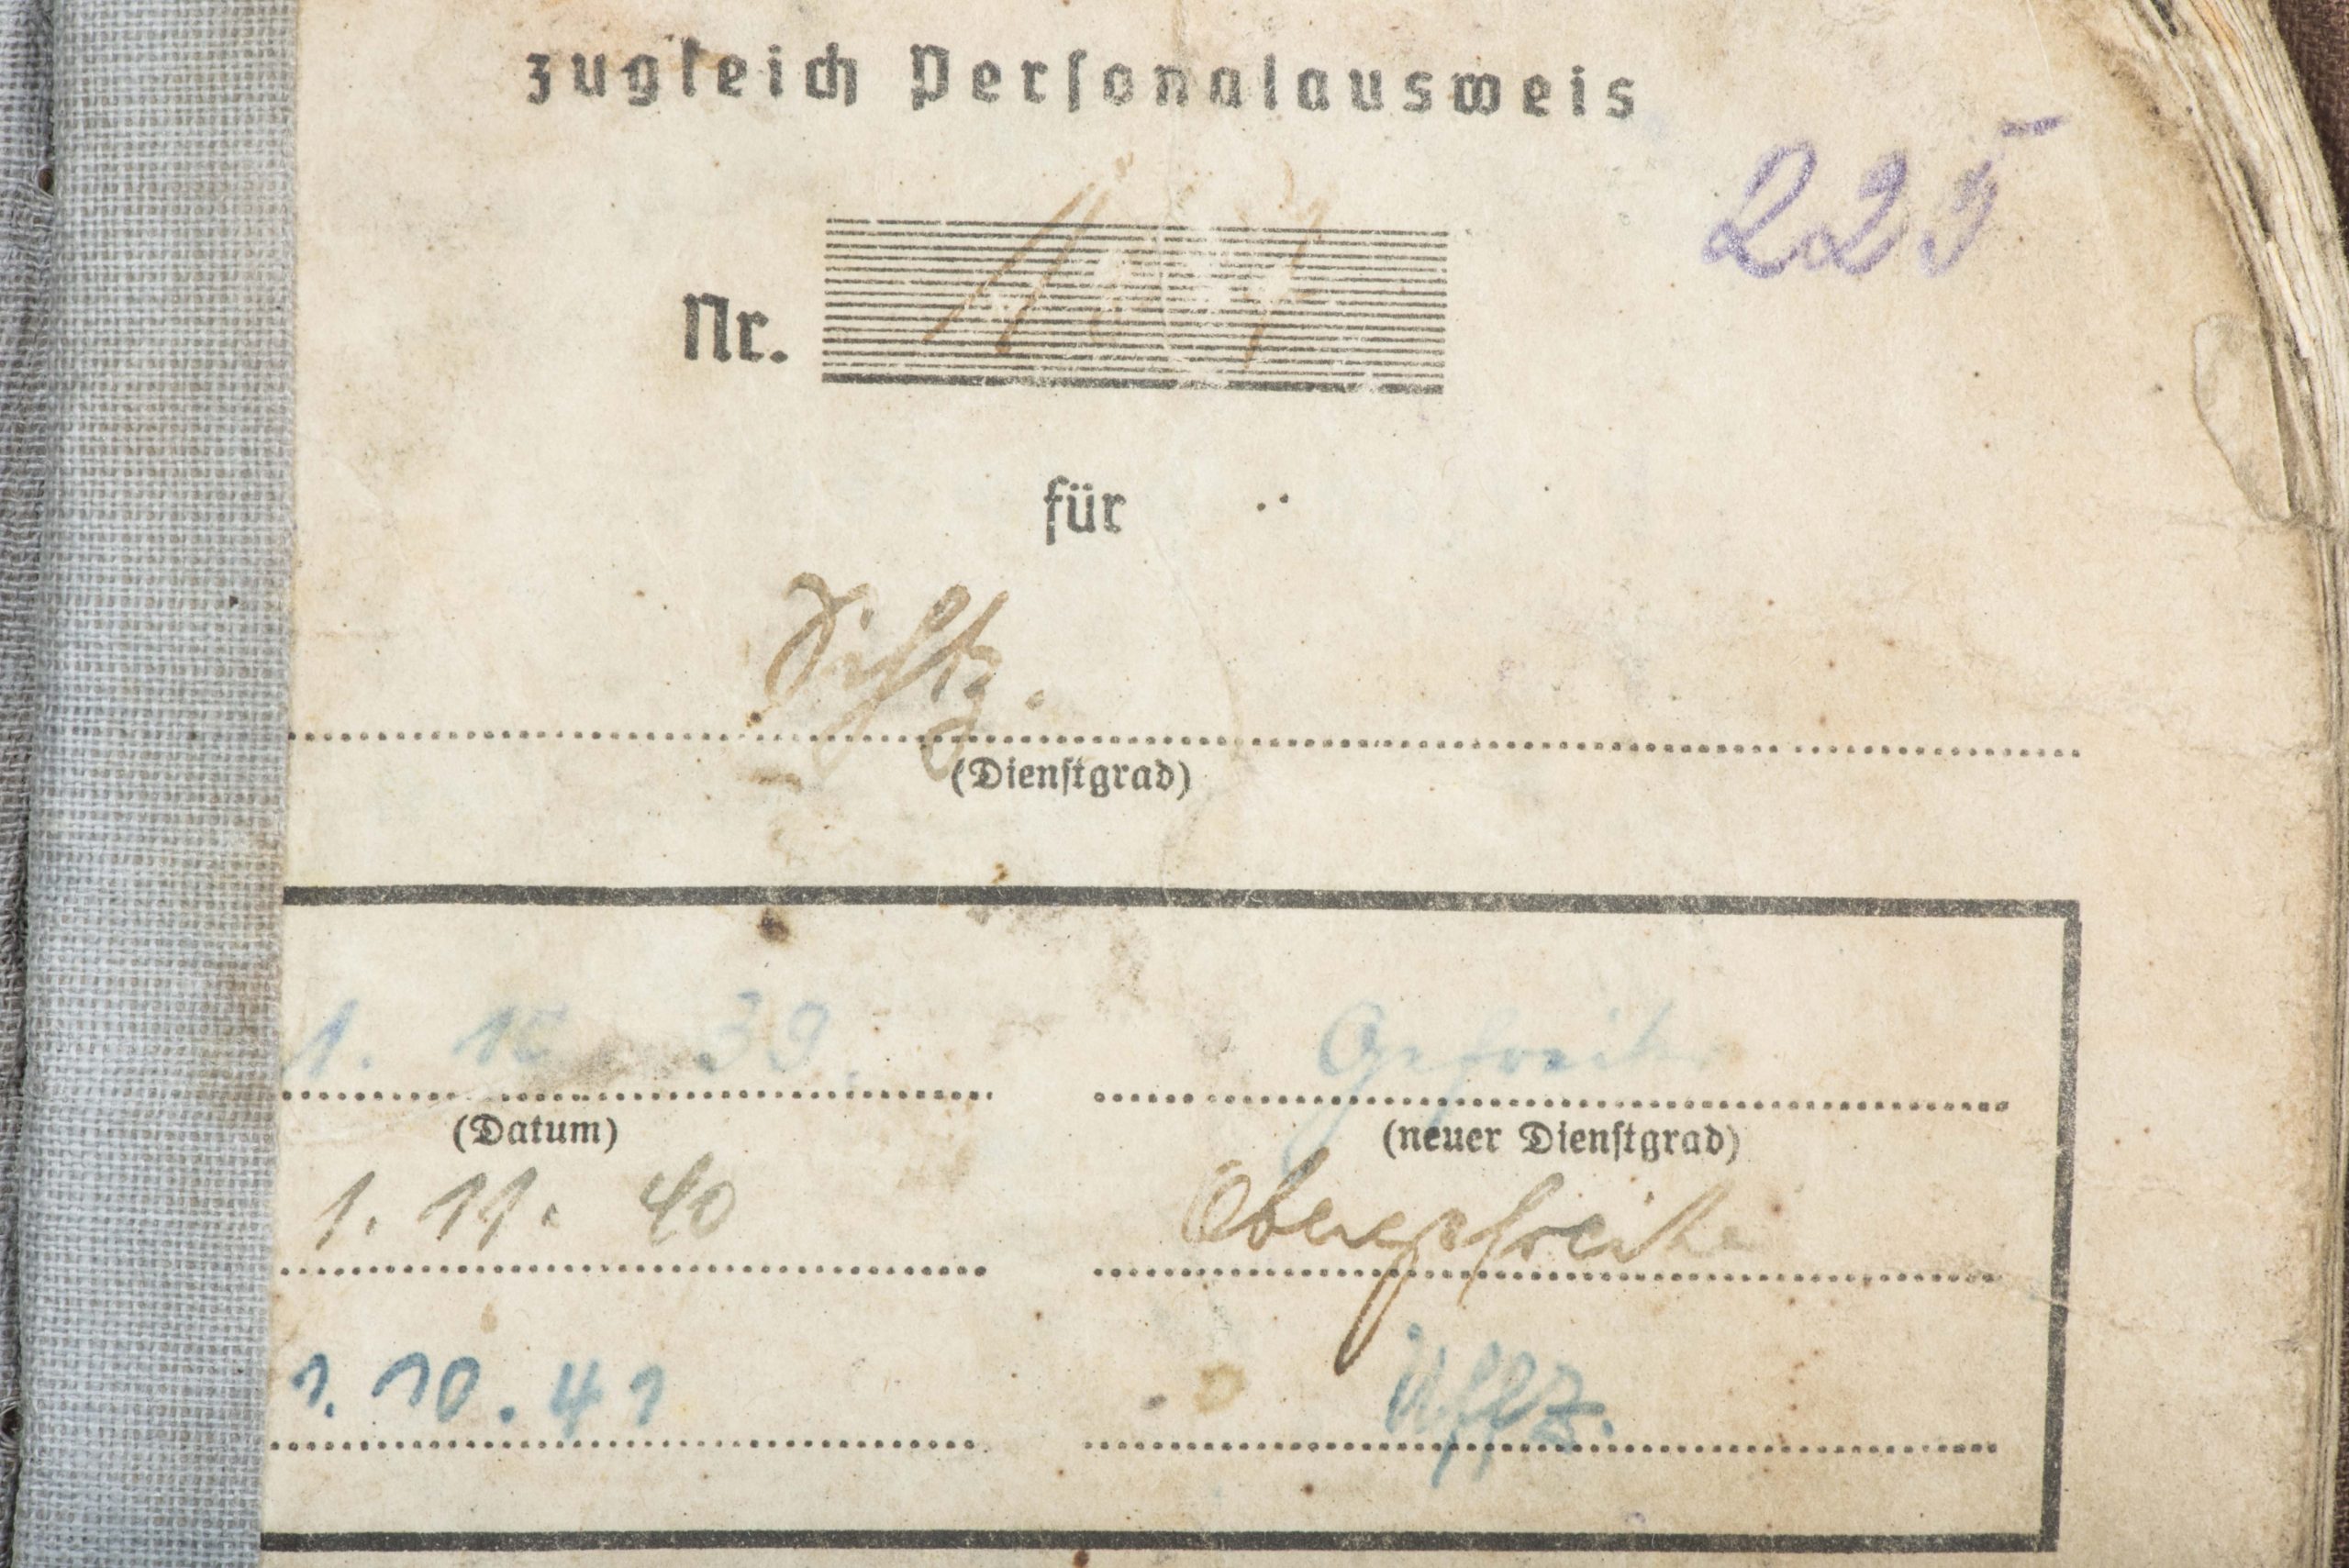 zugleich Personalausweis
225
Nr.
für
Schtz.
(Dienstgrad)
1. 10 39. Gefreiter
(Datum) (neuer Dienstgrad)
1. 11. 40 Obergefreite
1. 10. 41 Uffz.